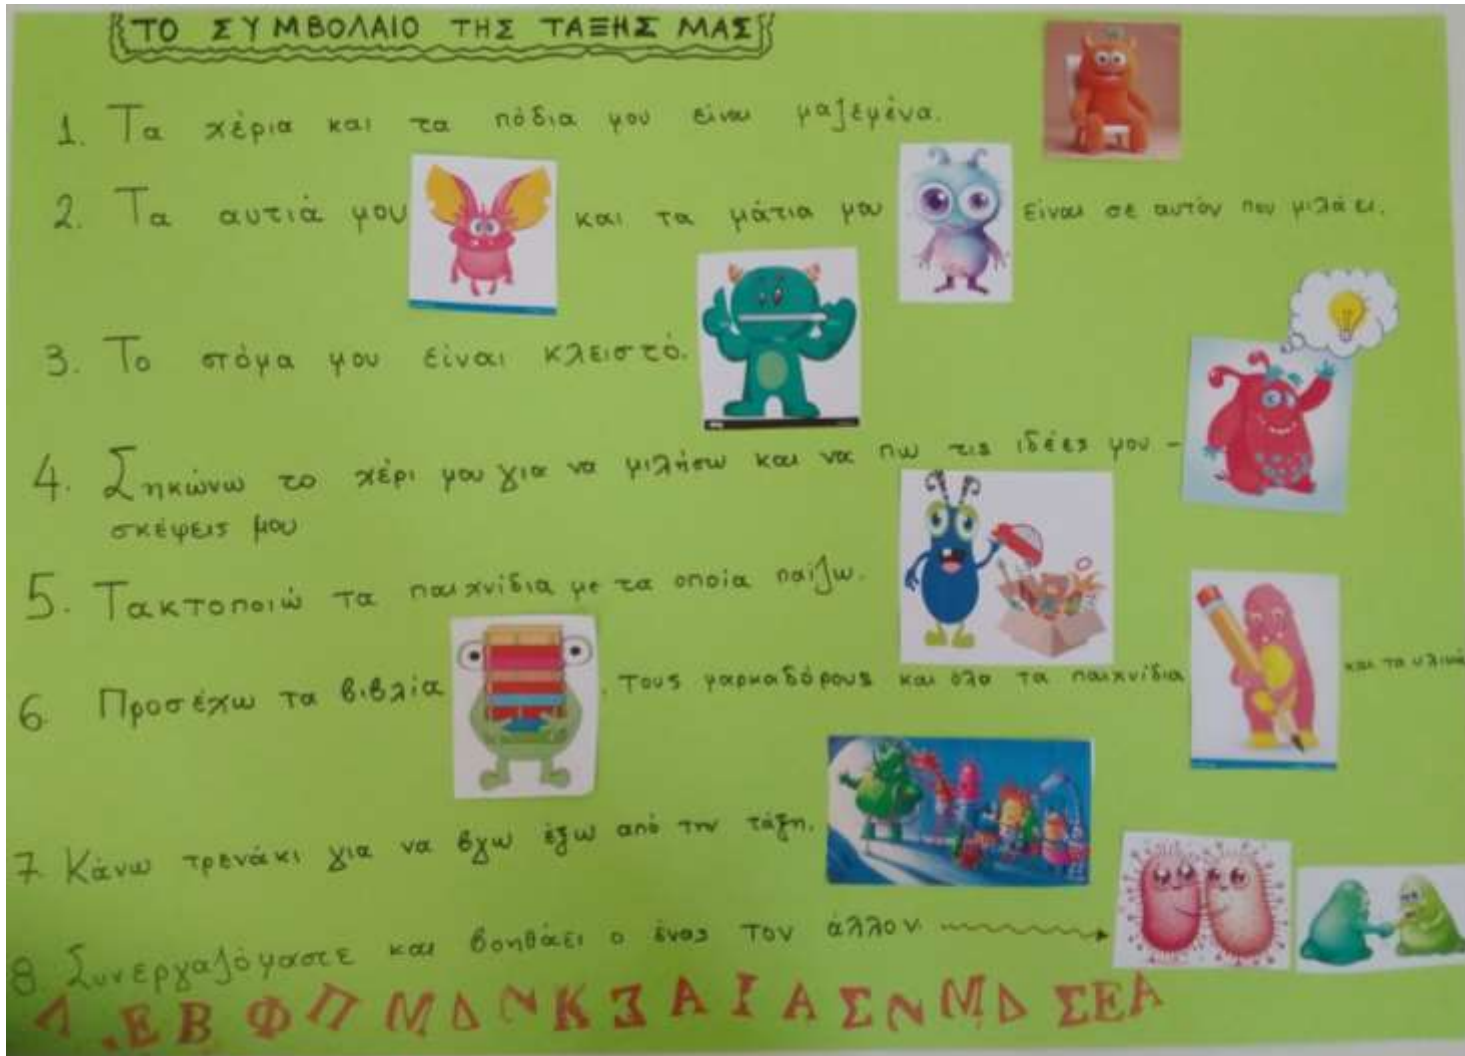 ΤΟ ΣΥΜΒΟΛΑΙΟ ΤΗΣ ΤΑΞΗΣ ΜΑΣ
1. Τα χέρια και τα πόδια μου είναι μαζεμένα.
2. Τα αυτιά μου και τα μάτια μου είναι σε αυτόν που μιλάει.
3. Το στόμα μου είναι κλειστό.
4. Σηκώνω το χέρι μου για να μιλήσω και να πω τις ιδέες μου -
σκέψεις μου
5. Τακτοποιώ τα παιχνίδια με τα οποία παίζω.
6. Προσέχω τα βιβλία, τους μαρκαδόρους και όλα τα παιχνίδια και τα υλικά
7. Κάνω τρενάκι για να βγω έξω από την τάξη.
8. Συνεργαζόμαστε και βοηθάει ο ένας τον άλλον
Λ . Ε Β Φ Π Μ Δ Ν Κ Ξ Α Ι Α Σ Ν Μ Δ Σ Ε Α